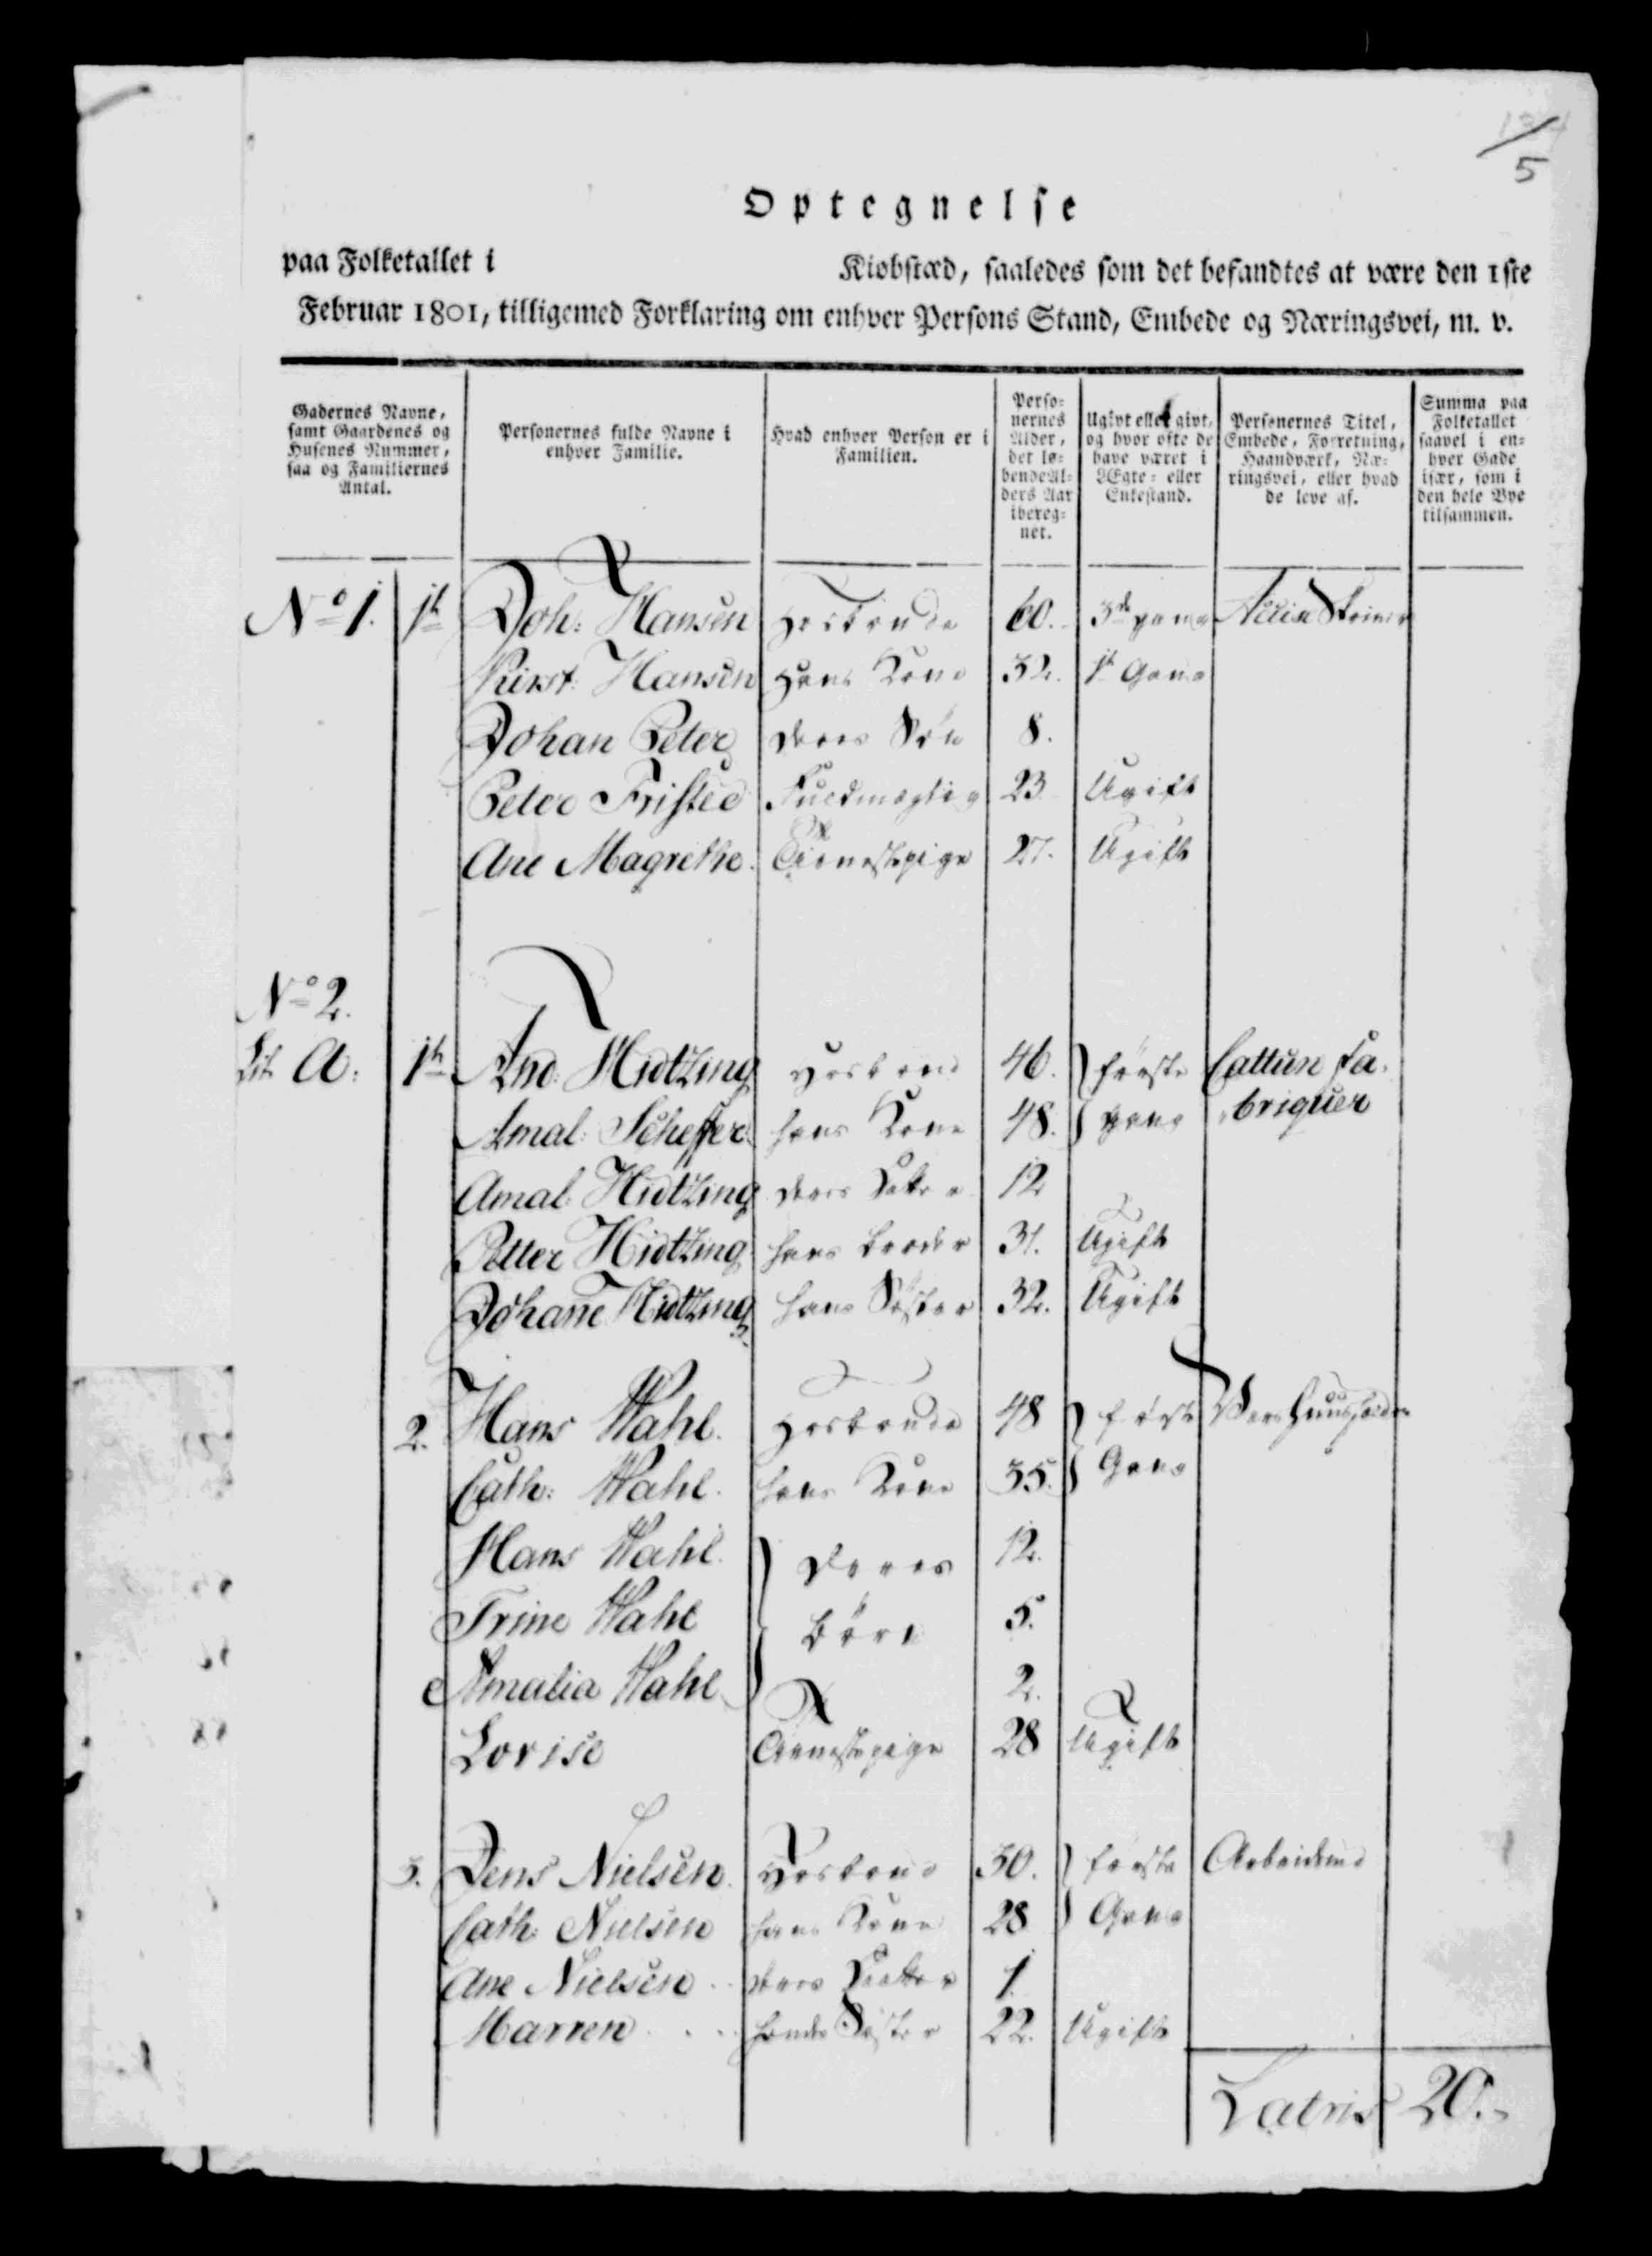 5
Optegnelse
paa Folketallet i Kiobstæd, saaledes som det befandtes at være den 1ste
Februar 1801, tilligemed Forklaring om enhver Persons Stand, Embede og Næringsvei, m. v.
Gadernes Navne, samt Gaardenes og Husenes Nummer, saa og Familiernes Antal.
Personernes fulde Navne i enhver Familie.
Hvad enhver Person er i Familien.
Perso-nernes Alder, det lø-bende Al-ders Aar ibereg-net.
Ugivt eller givt, og hvor ofte de have været i Ægte- eller Enkestand.
Personernes Titel, Embede, Forretning, Haandværk, Næ-ringsvei, eller hvad de leve af.
Summa paa Folketallet saavel i en-hver Gade især, som i den hele Bye tilsammen.
No 1. 1te Joh: Hansen Hosbonde 60. 3de gang Accise Skriver
Kirst: Hansen Hans Kone 32. 1te Gang
Johan Peter deres Søn 8.
Peter Fristed Fuldmægtig 23 Ugift
Ane Magrethe. Tienestepige 27. Ugift
No 2.
Lit. A: 1te And: Hidtzing Hosbond 46. } første Cattun Fa-
Amal: Scheffer hans Kone 48. } gang briquer
Amal: Hidtzing deres Datter 12
Petter Hidtzing hans broder 31. Ugift
Johane Hidtzing hans Søster 32. Ugift
2. Hans Wahl. Hosbonde 48 } første
Cath: Wahl. hans Kone 35. } Gang
Hans Wahl. } deres 12.
Trine Wahl } børn 5.
Amalia Wahl } 2.
Lovise Tienestepige 28 Ugift
3. Jens Nielsen. Hosbond 30. } første Arbeidsmd
Cath: Nielsen hans Kone 28 } Gang
Ane Nielsen .. deres Datter 1.
Marren .... hendes Søster 22. Ugift
Latris 20.